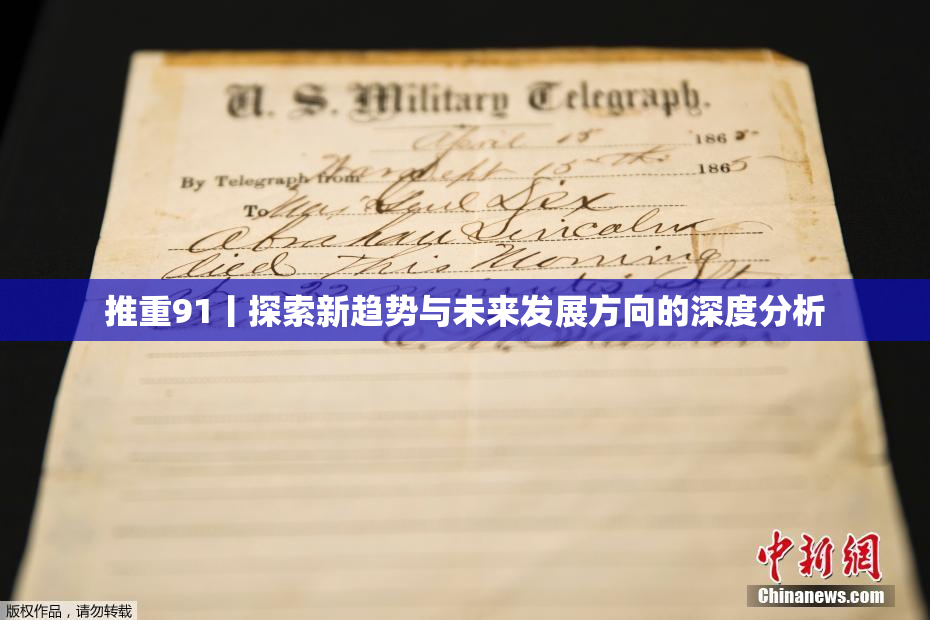 U. S. Military Telegraph.
April 15 1865
By Telegraph from War Dept 15th 1865
To Maj Genl Dix
Abraham Lincoln
died This Morning
at 22 minutes after
推重91丨探索新趋势与未来发展方向的深度分析
E. M. Stanton
中新網
Chinanews.com
版权作品，请勿转载